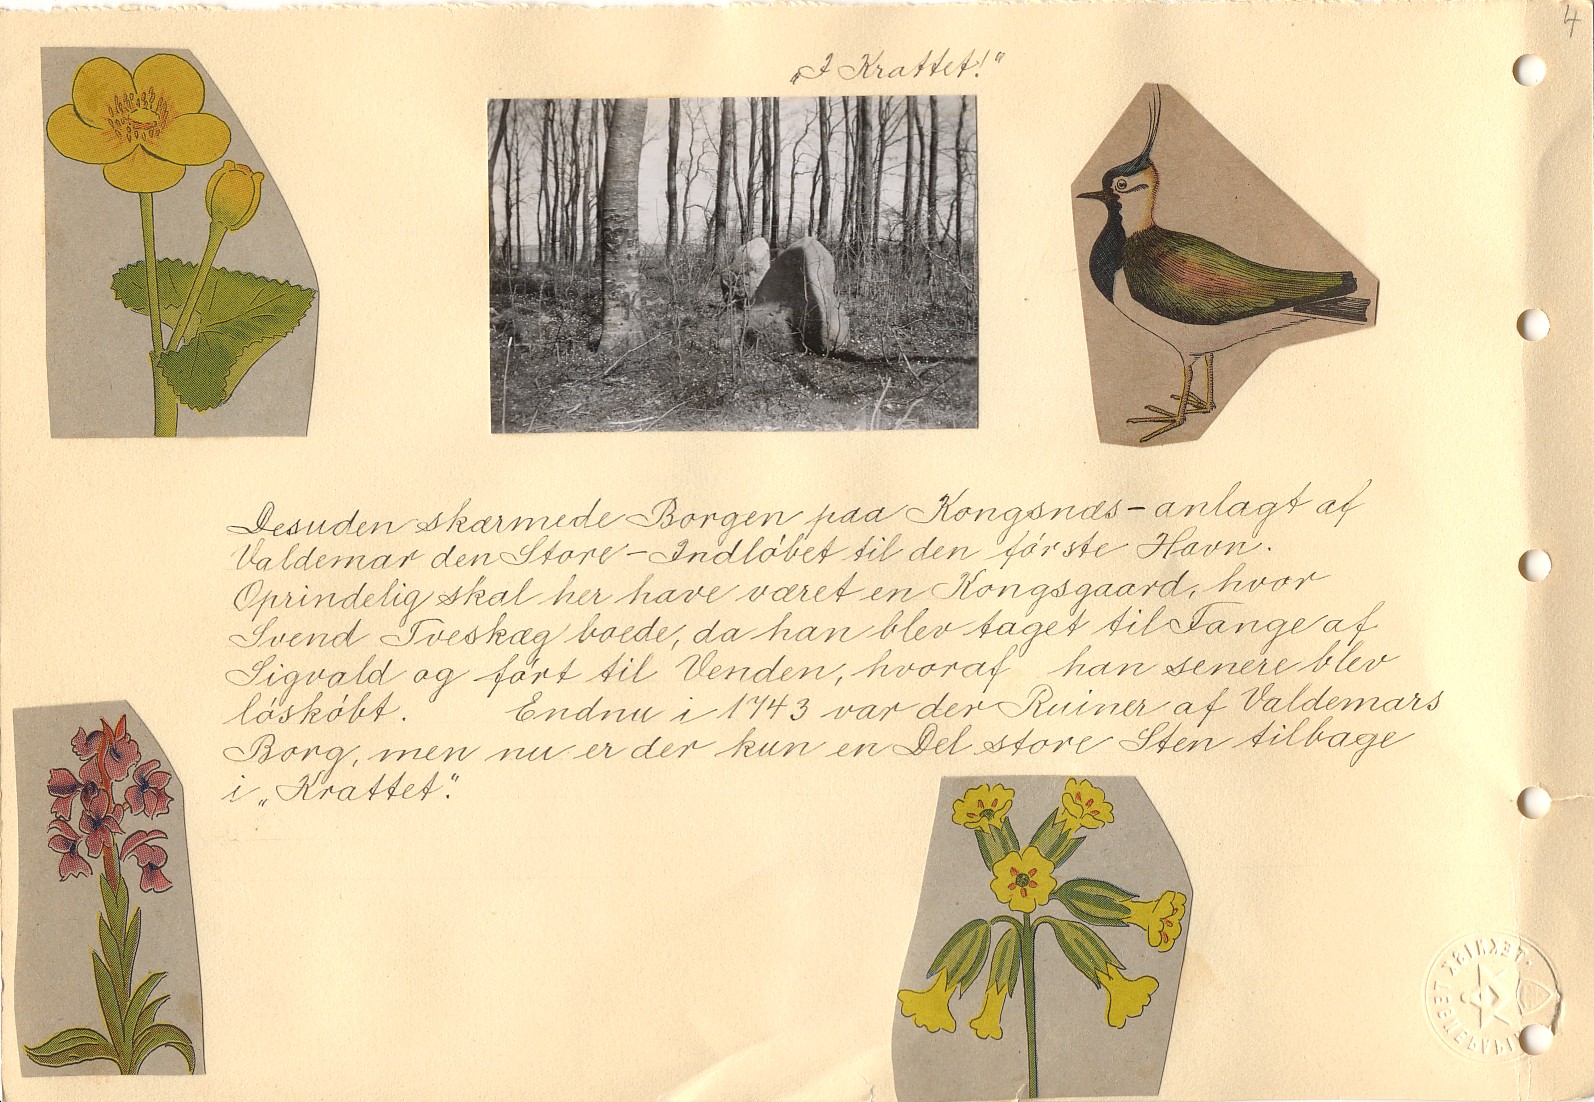 4
„I Krattet!"
Desuden skærmede Borgen paa Kongsnæs - anlagt af
Valdemar den Store - Indløbet til den første Havn.
Oprindelig skal her have været en Kongsgaard, hvor
Svend Tveskæg boede, da han blev taget til Fange af
Sigvald og ført til Venden, hvoraf han senere blev
løskøbt. Endnu i 1743 var der Ruiner af Valdemars
Borg, men nu er der kun en Del store Sten tilbage
i „Krattet".